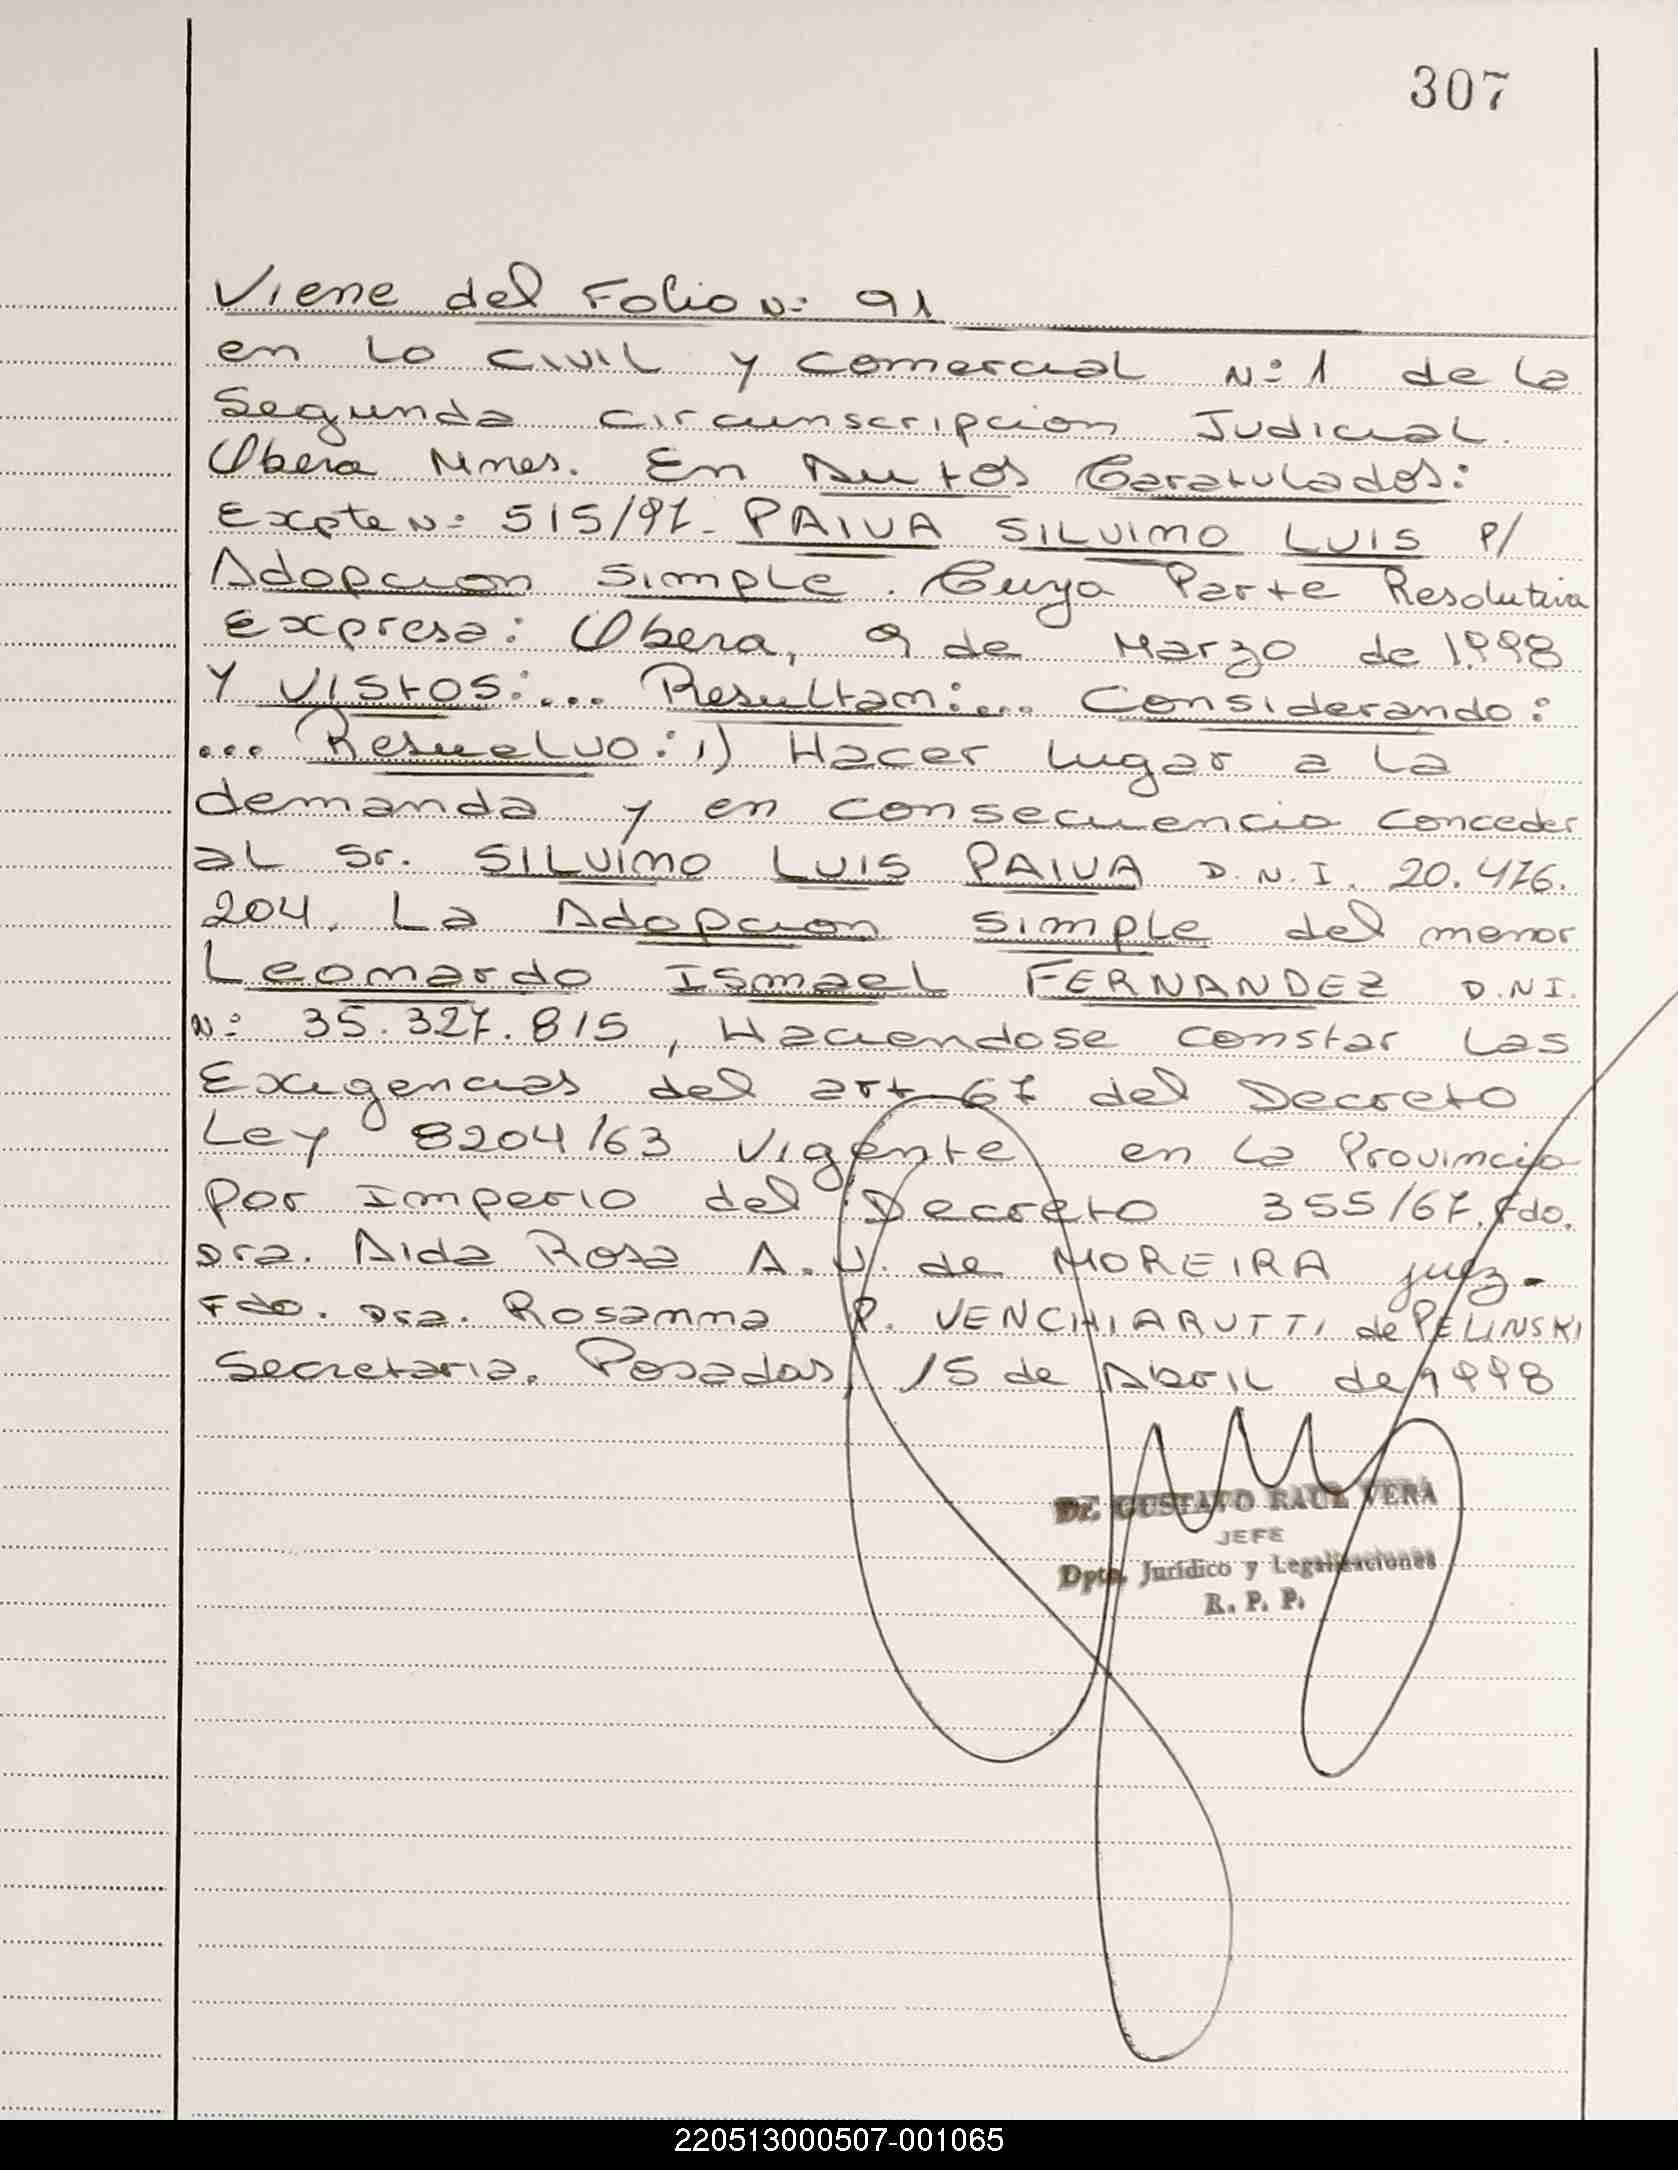 307
Viene del Folio N: 91
en lo civil y comercial N: 1 de la
Segunda circunscripcion Judicial.
Obera Mnes. En Autos Caratulados:
Expte N: 515/97- PAIVA SILVINO LUIS P/
Adopcion simple. Cuya Parte Resolutiva
Expresa: Obera, 9 de Marzo de 1.998
Y Vistos:... Resultan:... Considerando:
... Resuelvo: 1) Hacer lugar a la
demanda y en consecuencia conceder
al Sr. SILVINO LUIS PAIVA D.N.I. 20.476.
204. La Adopcion simple del menor
Leonardo Ismael FERNANDEZ D.N.I.
N: 35.327.815, Haciendose constar las
Exigencias del art 67 del Decreto
Ley 8204/63 Vigente en la Provincia
por Imperio del Decreto 355/67. Fdo.
Dra. Aida Rosa A. V. de MOREIRA juez-
Fdo. Dra. Rosanna P. VENCHIARUTTI de PELINSKI
Secretaria. Posadas, 15 de Abril de 1998
Dr. GUSTAVO RAUL VERA
JEFE
Dpto. Jurídico y Legalizaciones
R. P. P.
220513000507-001065